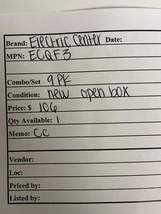 Brand: Electric Center Date:
MPN: ECQF3
Combo/Set 9 PK
Condition: new open box
Price: $ 106
Qty Available: 1
Memo: CC
Vendor:
Loc:
Priced by:
Listed by: